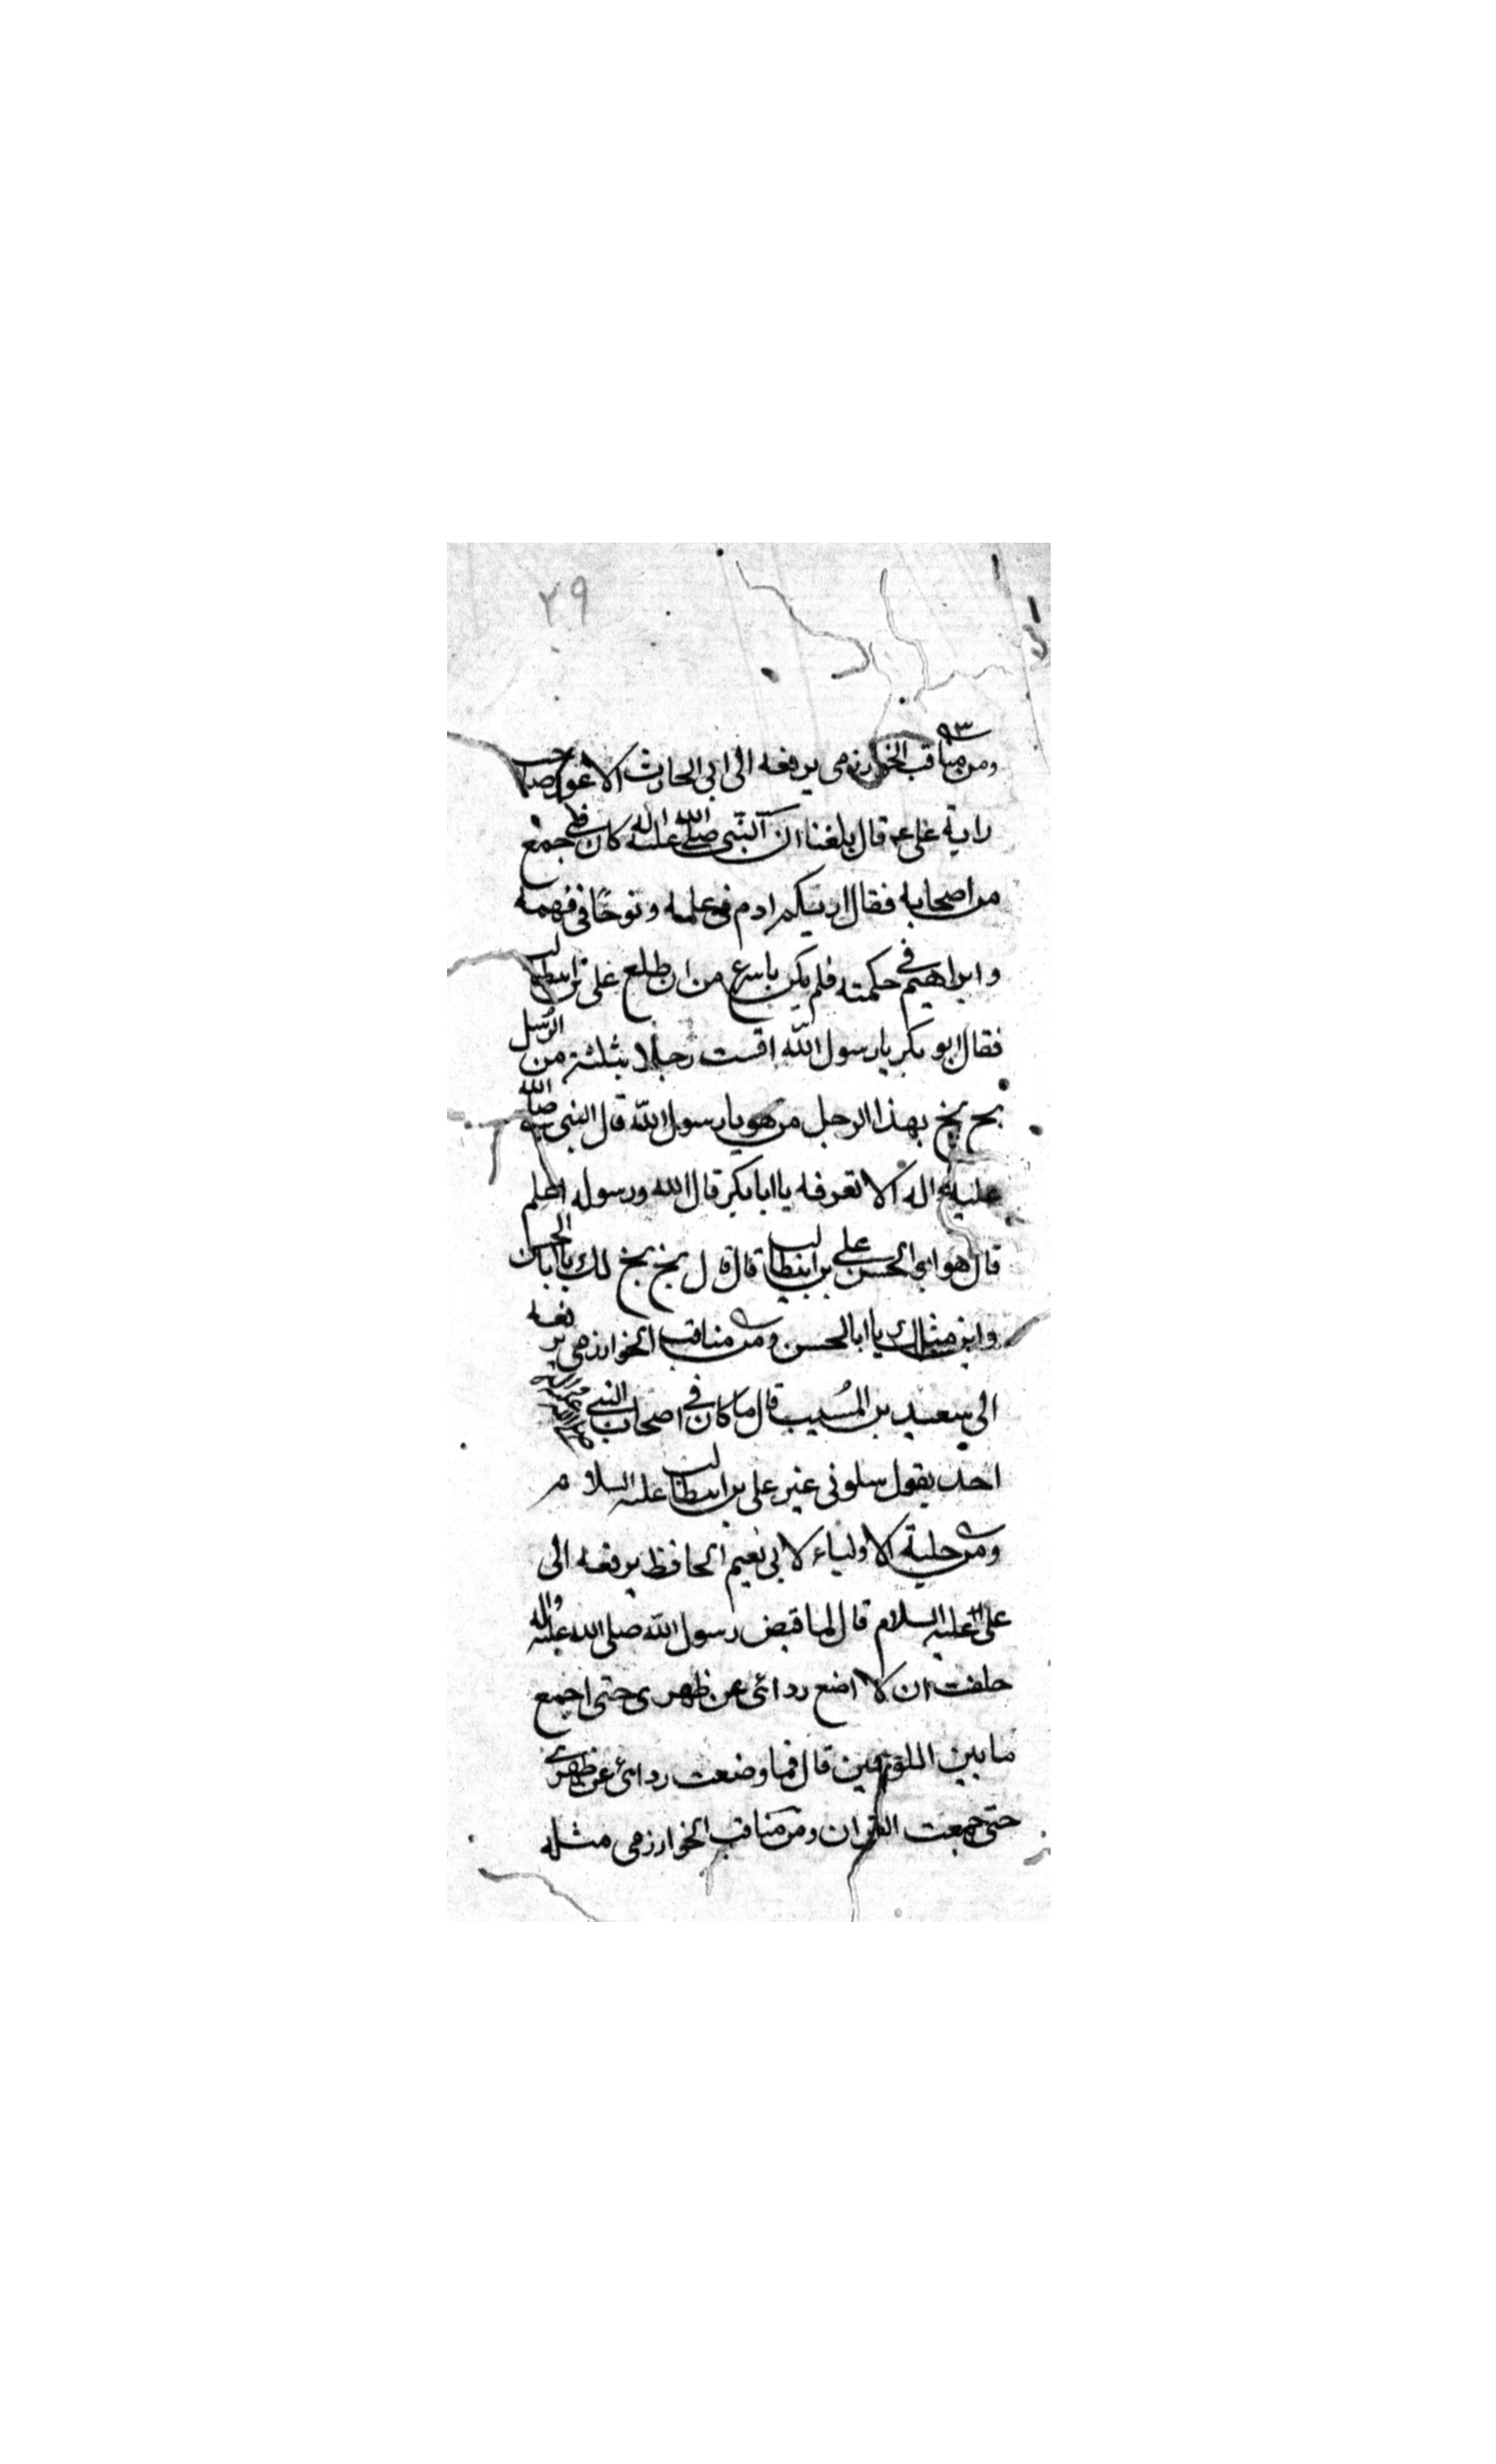 ٢٩
٩٣
ومن مناقب الخوارزمى يرفعه الى ابى الحارث الاعور صاحب
راية على ع قال بلغنا ان النبى صلى الله عليه واله كان فى جمع
من اصحابه فقال اريكم ادم فى علمه و نوحًا فى فهمه
و ابراهيم فى حكمته فلم يكن باسرع من ان طلع على بن ابيطالب
فقال ابو بكر يا رسول الله اقست رجلا بثلثة من الرسل
بخ بخ بهذا الرجل من هو يا رسول الله قال النبى صلى الله
عليه واله الا تعرفه يا ابا بكر قال الله ورسوله اعلم
قال هو ابى الحسن على بن ابيطالب قال بخ بخ لك يا ابا الحسن
و اين مثالك يا ابا الحسن ومن مناقب الخوارزمى يرفعه
الى سعيد بن المسيب قال ما كان فى اصحاب النبى
احد يقول سلونى غير على بن ابيطالب عليه السلام
ومن حلية الاولياء لابى نعيم الحافظ يرفعه الى
على عليه السلام قال لما قبض رسول الله صلى الله عليه واله
حلفت ان لا اضع ردائى عن ظهرى حتى اجمع
ما بين اللوحين قال فما وضعت ردائى عن ظهرى
حتى جمعت القران ومن مناقب الخوارزمى مثله